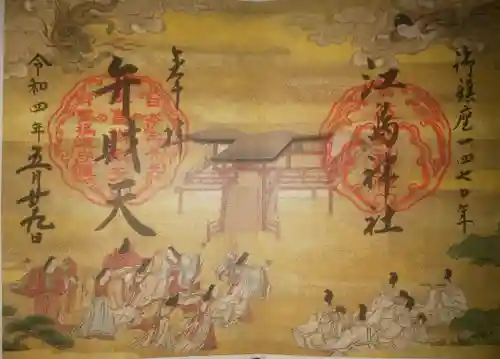 御鎮座一四七〇年
江島神社
奉拝
弁財天
令和四年五月廿九日